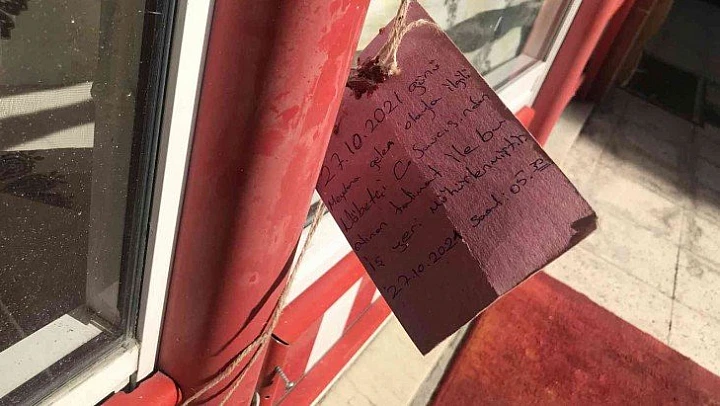 27.10.2021 günü
Meydana gelen olayla ilgili
Nöbetçi C. Savcısından
alınan talimat ile bu
iş yeri mühürlenmiştir.
27.10.2021 Saat: 05:30